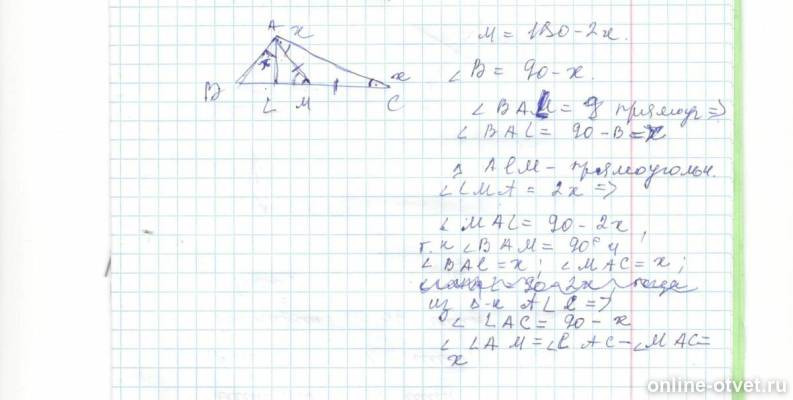 A x
x x
B L M C
M = 180 - 2x.
∠B = 90 - x.
∠BAL = прямоуг =>
∠BAL = 90 - B = x
Δ ALM - прямоугольн.
∠LMA = 2x =>
∠MAL = 90 - 2x,
т.к ∠BAM = 90° и
∠BAL = x; ∠MAC = x;
90 - 2x,
из Δ-к ALC =>
∠LAC = 90 - x
∠LAM = ∠LAC - ∠MAC =
x
online-otvet.ru